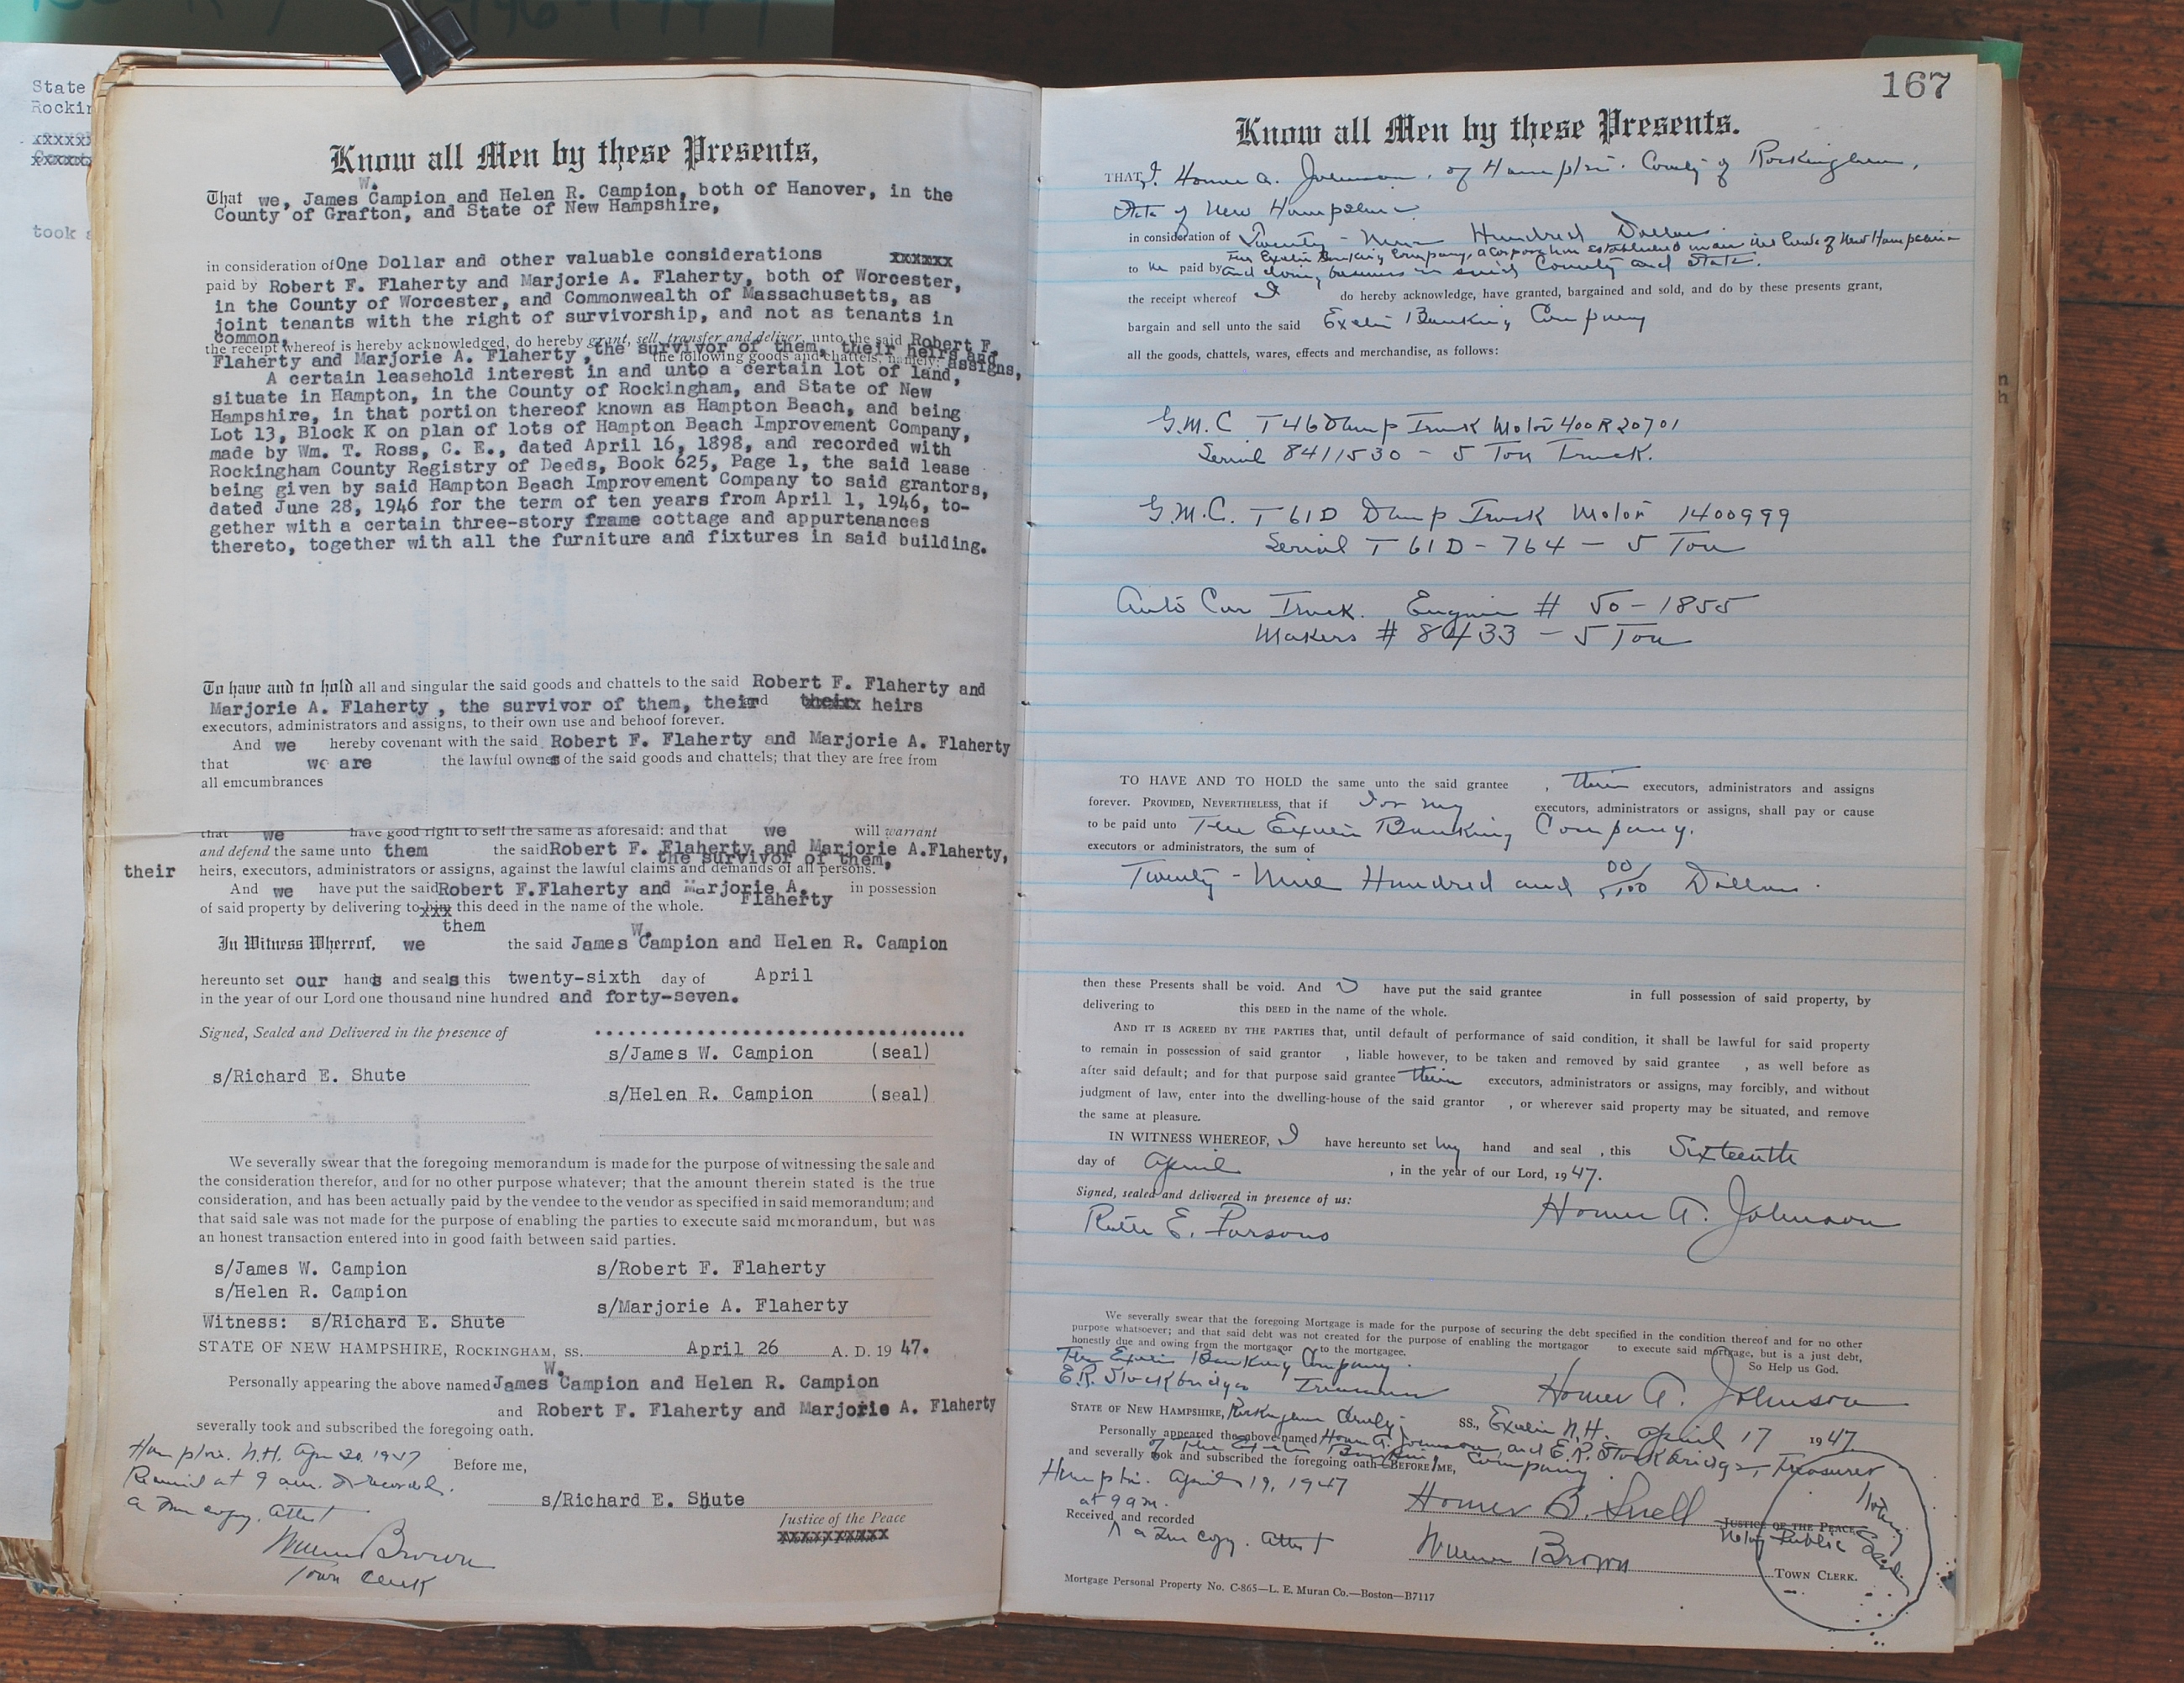 State
Rockin
xxxxxx
took a
Know all Men by these Presents,
W.
That we, James Campion and Helen R. Campion, both of Hanover, in the
County of Grafton, and State of New Hampshire,
in consideration of One Dollar and other valuable considerations xxxxxx
paid by Robert F. Flaherty and Marjorie A. Flaherty, both of Worcester,
in the County of Worcester, and Commonwealth of Massachusetts, as
joint tenants with the right of survivorship, and not as tenants in
common,
the receipt whereof is hereby acknowledged, do hereby grant, sell, transfer and deliver unto the said Robert F.
Flaherty and Marjorie A. Flaherty, the survivor of them, their heirs and assigns,
the following goods and chattels, namely:
A certain leasehold interest in and unto a certain lot of land,
situate in Hampton, in the County of Rockingham, and State of New
Hampshire, in that portion thereof known as Hampton Beach, and being
Lot 13, Block K on plan of lots of Hampton Beach Improvement Company,
made by Wm. T. Ross, C. E., dated April 16, 1898, and recorded with
Rockingham County Registry of Deeds, Book 625, Page 1, the said lease
being given by said Hampton Beach Improvement Company to said grantors,
dated June 28, 1946 for the term of ten years from April 1, 1946, to-
gether with a certain three-story frame cottage and appurtenances
thereto, together with all the furniture and fixtures in said building.
To have and to hold all and singular the said goods and chattels to the said Robert F. Flaherty and
Marjorie A. Flaherty , the survivor of them, their and their heirs
executors, administrators and assigns, to their own use and behoof forever.
And we hereby covenant with the said Robert F. Flaherty and Marjorie A. Flaherty
that we are the lawful owners of the said goods and chattels; that they are free from
all emcumbrances
that we have good right to sell the same as aforesaid; and that we will warrant
and defend the same unto them the said Robert F. Flaherty and Marjorie A.Flaherty,
the survivor of them,
their heirs, executors, administrators or assigns, against the lawful claims and demands of all persons.
And we have put the said Robert F.Flaherty and Marjorie A. in possession
Flaherty
of said property by delivering to him this deed in the name of the whole.
them
W.
In Witness Whereof, we the said James Campion and Helen R. Campion
hereunto set our hands and seals this twenty-sixth day of April
in the year of our Lord one thousand nine hundred and forty-seven.
Signed, Sealed and Delivered in the presence of
s/James W. Campion (seal)
s/Richard E. Shute
s/Helen R. Campion (seal)
We severally swear that the foregoing memorandum is made for the purpose of witnessing the sale and
the consideration therefor, and for no other purpose whatever; that the amount therein stated is the true
consideration, and has been actually paid by the vendee to the vendor as specified in said memorandum; and
that said sale was not made for the purpose of enabling the parties to execute said memorandum, but was
an honest transaction entered into in good faith between said parties.
s/James W. Campion s/Robert F. Flaherty
s/Helen R. Campion
s/Marjorie A. Flaherty
Witness: s/Richard E. Shute
STATE OF NEW HAMPSHIRE, ROCKINGHAM, SS. April 26 A. D. 19 47.
W.
Personally appearing the above named James Campion and Helen R. Campion
and Robert F. Flaherty and Marjorie A. Flaherty
severally took and subscribed the foregoing oath.
Hampton. N.H. Apr 30. 1947
Before me,
Received at 9 a.m. & recorded.
a true copy. Attest
s/Richard E. Shute
Justice of the Peace
Notary Public
Brown
Town Clerk
167
Know all Men by these Presents.
THAT, I. Homer A. Johnson, of Hampton. County of Rockingham,
State of New Hampshire
in consideration of Twenty-Nine Hundred Dollars.
The Exeter Banking Company, a corporation established under the laws of New Hampshire
to me paid by and doing business in said County and State.
the receipt whereof I do hereby acknowledge, have granted, bargained and sold, and do by these presents grant,
bargain and sell unto the said Exeter Banking Company
all the goods, chattels, wares, effects and merchandise, as follows:
G.M.C T46 Dump Truck Motor 400R20701
Serial 8411530 - 5 Ton Truck.
G.M.C. T 61D Dump Truck Motor 1400999
Serial T 61D-764 - 5 Ton
Auto Car Truck. Engine # 50-1855
Makers # 8433 - 5 Ton
TO HAVE AND TO HOLD the same unto the said grantee , their executors, administrators and assigns
forever. PROVIDED, NEVERTHELESS, that if I or my executors, administrators or assigns, shall pay or cause
to be paid unto The Exeter Banking Company.
executors or administrators, the sum of
Twenty-Nine Hundred and 00/100 Dollars.
then these Presents shall be void. And I have put the said grantee in full possession of said property, by
delivering to this DEED in the name of the whole.
AND IT IS AGREED BY THE PARTIES that, until default of performance of said condition, it shall be lawful for said property
to remain in possession of said grantor , liable however, to be taken and removed by said grantee , as well before as
after said default; and for that purpose said grantee their executors, administrators or assigns, may forcibly, and without
judgment of law, enter into the dwelling-house of the said grantor , or wherever said property may be situated, and remove
the same at pleasure.
IN WITNESS WHEREOF, I have hereunto set my hand and seal , this Sixteenth
day of April , in the year of our Lord, 1947.
Signed, sealed and delivered in presence of us:
Ruth E. Parsons Homer A. Johnson
We severally swear that the foregoing Mortgage is made for the purpose of securing the debt specified in the condition thereof and for no other
purpose whatsoever; and that said debt was not created for the purpose of enabling the mortgagor to execute said mortgage, but is a just debt,
honestly due and owing from the mortgagor to the mortgagee.
So Help us God.
The Exeter Banking Company.
E.R. Stockbridge Treasurer Homer A. Johnson
STATE OF NEW HAMPSHIRE, Rockingham County SS., Exeter N.H. April 17 1947
Personally appeared the above named Homer A. Johnson, and E.R. Stockbridge, Treasurer
of The Exeter Banking Company.
and severally took and subscribed the foregoing oath BEFORE ME,
Hampton. April 19, 1947
at 9 am. Homer B. Snell
Received and recorded JUSTICE OF THE PEACE
Notary Public
a true copy. Attest
Brown
TOWN CLERK.
Notary Seal.
Mortgage Personal Property No. C-865—L. E. Muran Co.—Boston—B7117